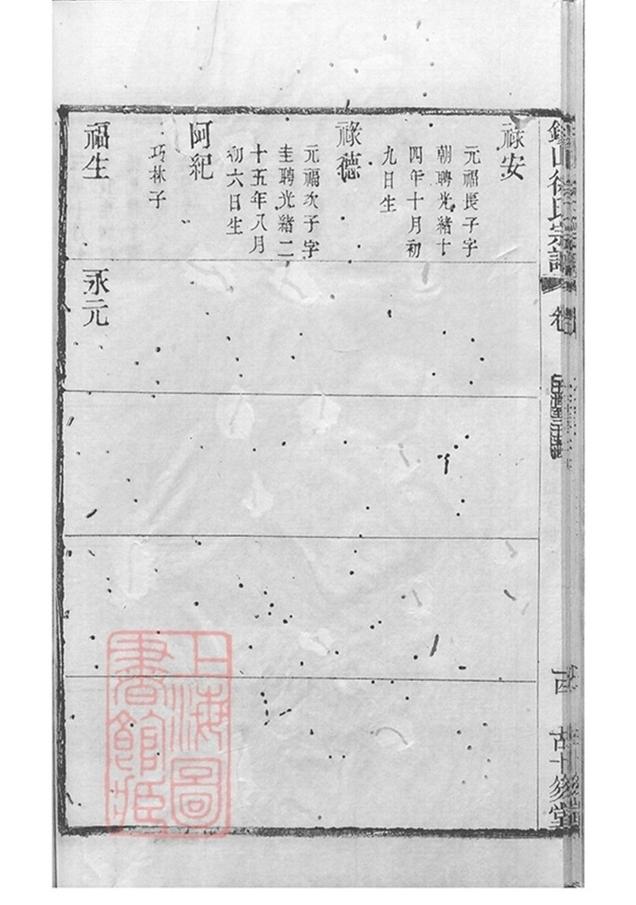 祿安
元福長子字
朝聘光緒十
四年十月初
九日生
祿德
元福次子字
圭聘光緒二
十五年八月
初六日生
阿紀
巧林子
福生
永元
山徐氏宗譜
卷
上海圖
書館藏